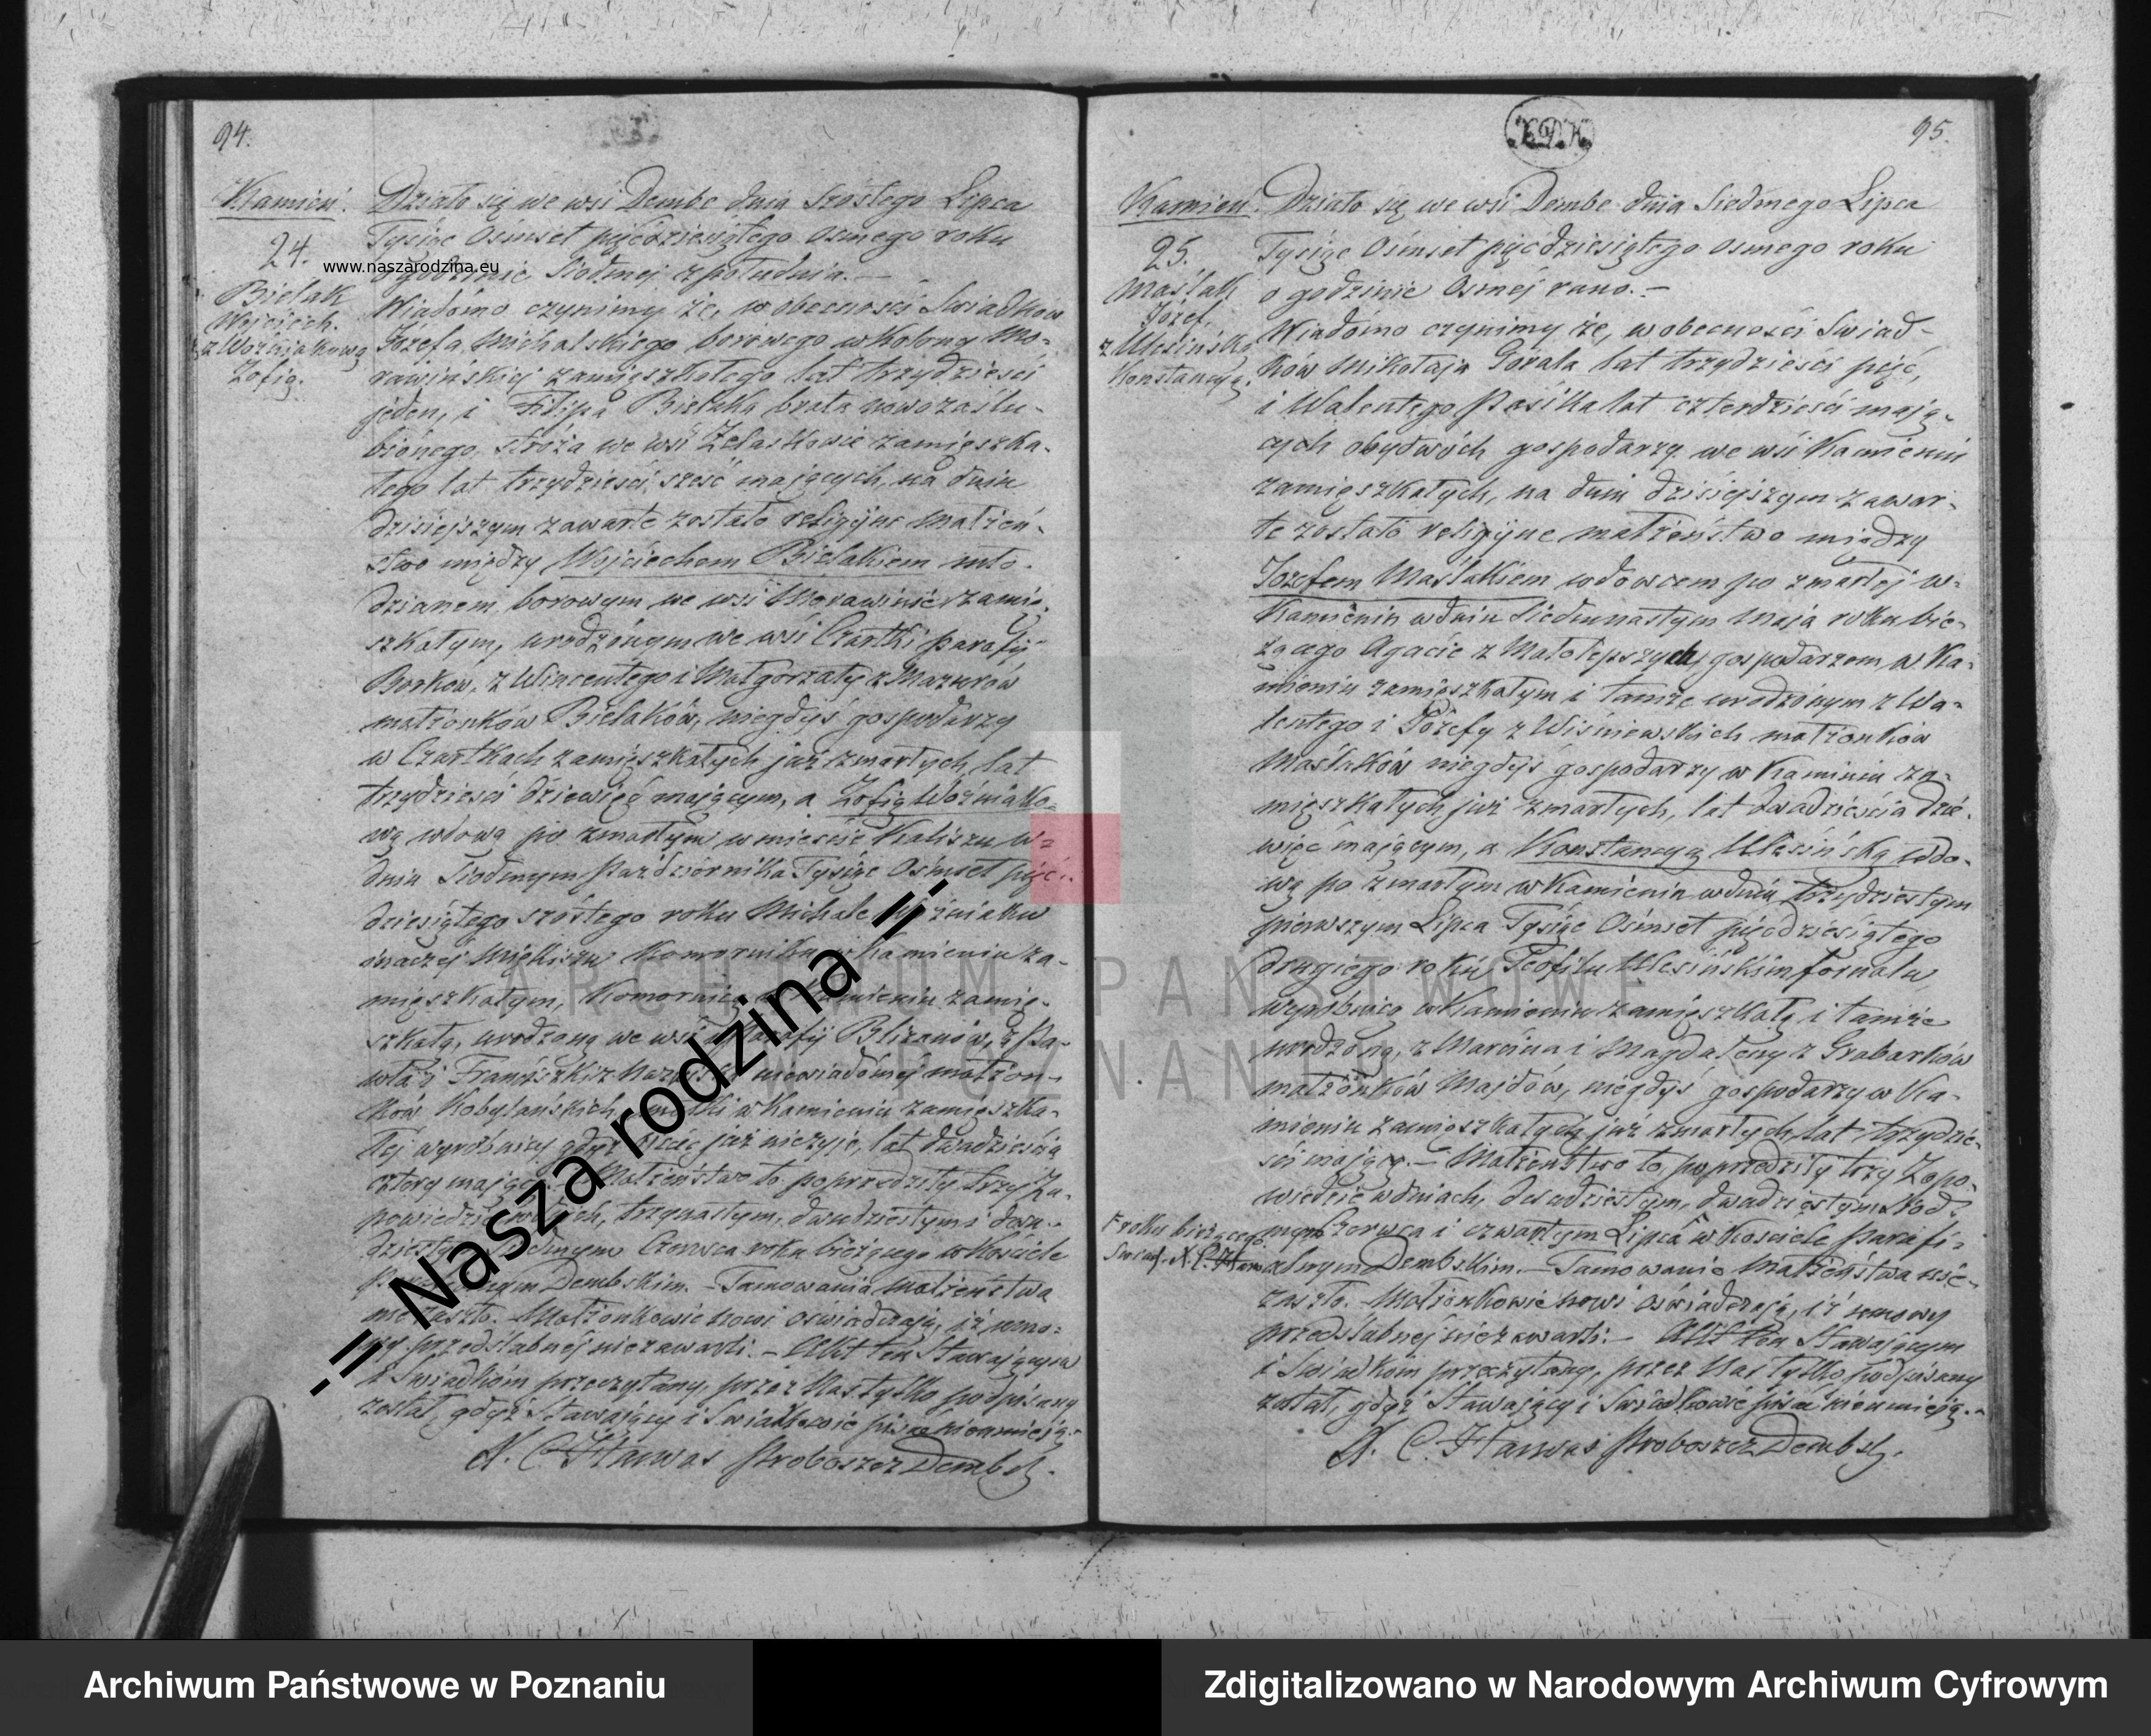 94.
Kamień.
24.
Bielak
Wojciech.
z Woźniakową
Zofią.
Działo się we wsi Dembe dnia szóstego Lipca
Tysiąc Ośmset pięćdziesiątego osmego roku
o godzinie Siodmej z południa. —
Wiadomo czynimy że, w obecności Swiadków
Józefa Michalskiego borowego w Kolony Mo-
rawińskiej zamięszkałego lat trzydzieści
jeden, i Filipa Bielaka brata nowozaślu-
bionego, stróża we wsi Żelaskowie zamięszka-
łego lat trzydzieści sześć mających, na dniu
dzisiejszym zawarte zostało religijne Małżeń-
stwo między Wojciechem Bielakiem mło-
dzianem borowym we wsi Morawinie zamię-
szkałym, urodzonym we wsi Czartki parafji
Borków, z Wincentego i Małgorzaty z Mazurów
małżonków Bielaków, niegdyś gospodarzy
w Czartkach zamięszkałych już zmarłych, lat
trzydzieści dziewięć mającym, a Zofią Woźniako-
wą wdową po zmarłym w mieście Kaliszu w
dniu Siodmym Października Tysiąc Ośmset pięć-
dziesiątego szóstego roku Michale Woźniaku
inaczej komorniku w Kamieniu za-
mięszkałym, komornicą w Kamieniu zamię-
szkałą, urodzoną we wsi parafji Blizanów, z Pa-
wła i Franciszki z niewiadomej małżon-
ków Kobylańskich, matki w Kamieniu zamięszka-
łej wyrobnicy gdyż ojciec już nie żyje, lat dwadzieścia
cztery mającą. — Małżeństwo to poprzedziły trzy Za-
powiedzie w dniach, trzynastym, dwudziestym i dwu-
dziestym siodmym Czerwca roku bieżącego w Kościele
parafialnym Dembskim. — Tamowania Małżeństwa
nie zaszło. Małżonkowie nowi oświadczają, iż umo-
wy przedślubnej nie zawarli. — Akt ten Stawającym
i Swiadkom przeczytany, przez Nas tylko podpisany
został, gdyż Stawający i Swiadkowie pisać nieumieją. —
X. C. Hanwas Proboszcz Dembsk.
95.
Kamień.
25.
Maślak
Józef.
z Ulesińską
Konstancyą.
Działo się we wsi Dembe dnia Siedmego Lipca
Tysiąc Ośmset pięćdziesiątego osmego roku
o godzinie Osmej rano. —
Wiadomo czynimy że, w obecności Swiad-
ków Mikołaja Gorala lat trzydzieści pięć,
i Walentego Pasika lat czterdzieści mają-
cych obydwóch gospodarzy we wsi Kamieniu
zamięszkałych, na dniu dzisiejszym zawar-
te zostało religijne małżeństwo między
Józefem Maślakiem wdowcem po zmarłej w
Kamieniu w dniu Siedmnastym Maja roku bie-
żącego Agacie z Małolepszych, gospodarzem w Ka-
mieniu zamięszkałym i tamże urodzonym z Wa-
lentego i Józefy z Wiśniewskich małżonków
Maślaków niegdyś gospodarzy w Kaminiu za-
mięszkałych już zmarłych, lat dwadzieścia dzie-
więć mającym, a Konstancyą Ulesińską wdo-
wą po zmarłym w Kamieniu w dniu trzydziestym
pierwszym Lipca Tysiąc Ośmset pięćdziesiątego
drugiego roku Teofilu Ulesińskim fornalu
wyrobnicą w Kamieniu zamięszkałą i tamże
urodzoną, z Marcina i Magdaleny z Grabarków
małżonków Majdów, niegdyś gospodarzy w Ka-
mieniu zamięszkałych już zmarłych, lat trzydzie-
ści mającą. — Małżeństwo to poprzedziły trzy Zapo-
wiedzie w dniach, dwudziestym, dwudziestym siod-
mym Czerwca i czwartym Lipca w Kościele parafi-
roku bieżącego
Swiad. X. C. Hanw
alnym Dembskim. — Tamowanie Małżeństwa nie-
zaszło. Małżonkowie nowi oświadczają, iż umowy
przedślubnej nie zawarli. — Akt ten Stawającym
i Swiadkom przeczytany, przez Nas tylko podpisany
został, gdyż Stawający i Swiadkowie pisać nieumieją. —
X. C. Hanwas Proboszcz Dembsk.
www.naszarodzina.eu
-= Nasza rodzina =-
ARCHIWUM PAŃSTWOWE
W POZNANIU
Archiwum Państwowe w Poznaniu
Zdigitalizowano w Narodowym Archiwum Cyfrowym